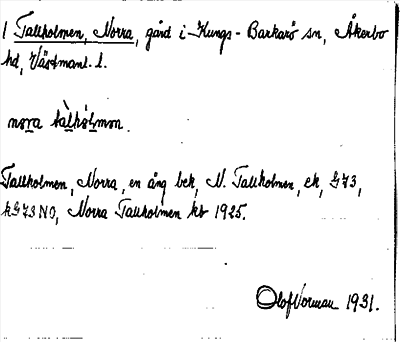 1 Tallholmen, Norra, gård i Kungs-Barkarö sn, Åkerbo
hd, Västmanl. l.
nora tàlhòlmon.
Tallholmen, Norra, en ång bek, N. Tallholmen, ek, G73,
kG73 NO, Norra Tallholmen kb 1925.
Olof Vorman 1931.